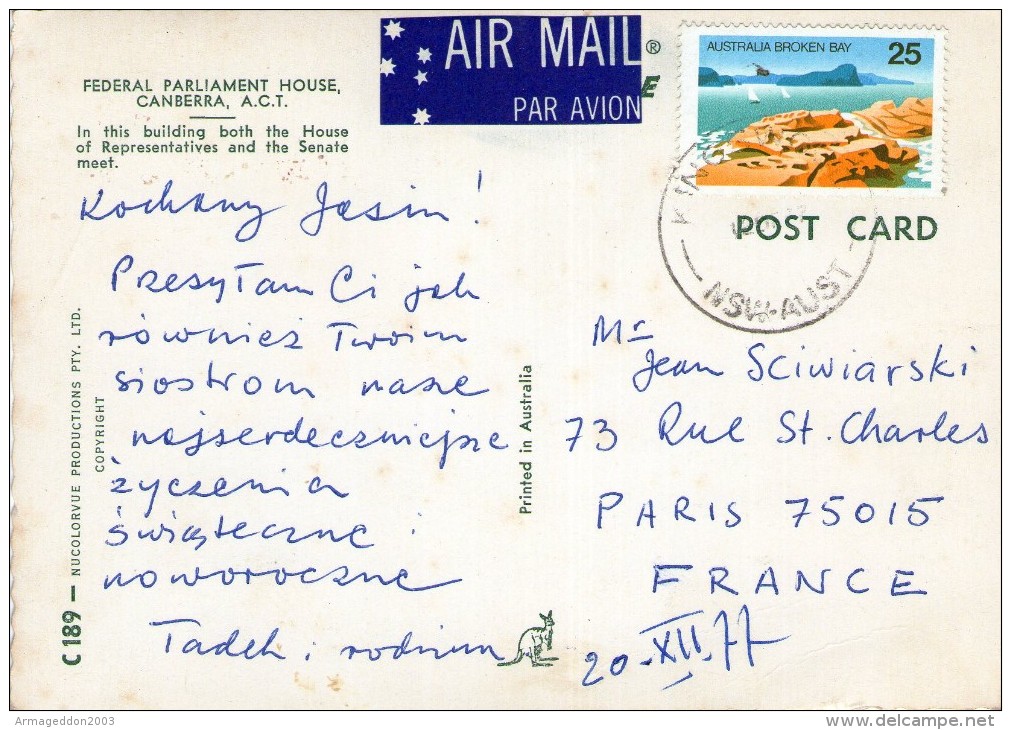 AIR MAIL
PAR AVION
®
E
AUSTRALIA BROKEN BAY 25
FEDERAL PARLIAMENT HOUSE,
CANBERRA, A.C.T.
In this building both the House
of Representatives and the Senate
meet.
POST CARD
NSW-AUST
Kochany Jasiu!
Przesyłam Ci jak
również Twoim
siostrom nasze
najserdeczniejsze
życzenia
świąteczne i
noworoczne
Tadek i rodzina
C 189 — NUCOLORVUE PRODUCTIONS PTY. LTD.
COPYRIGHT
Printed in Australia
Mr
Jean Sciwiarski
73 Rue St. Charles
PARIS 75015
FRANCE
20.XII.77
Armageddon2003
delcampe.net